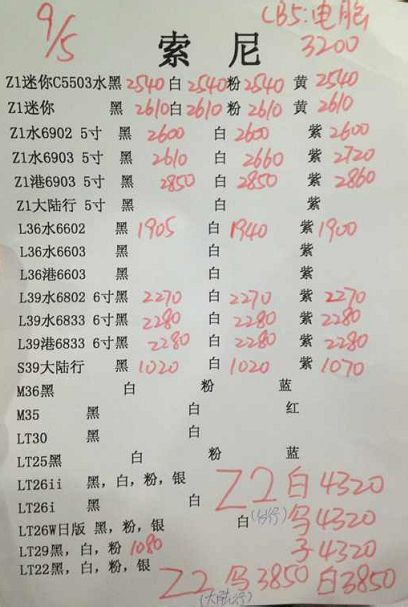 9/5
CB5:电脑
索 尼
3200
Z1迷你C5503水黑 2540 白 2540 粉 2540 黄 2540
Z1迷你 黑 2610 白 2610 粉 2610 黄 2610
Z1水6902 5寸 黑 2600 白 2600 紫 2600
Z1水6903 5寸 黑 2610 白 2660 紫 2720
Z1港6903 5寸 黑 2850 白 2850 紫 2860
Z1大陆行 5寸 黑 白 紫
L36水6602 黑 1905 白 1940 紫 1900
L36水6603 黑 白 紫
L36港6603 黑 白 紫
L39水6802 6寸黑 2270 白 2270 紫 2270
L39水6833 6寸黑 2280 白 2280 紫 2280
L39港6833 6寸黑 2280 白 2280 紫 2280
S39大陆行 黑 1020 白 1020 紫 1070
M36黑 白 粉 蓝
M35 黑 白 红
LT30 黑 白
LT25黑 白 粉 蓝
LT26ii 黑，白，粉，银
LT26i 黑 白
Z2 白 4320
LT26W日版 黑，粉，银 白
LT29黑，白，粉 1080
4320
4320
LT22黑，白，粉，银
Z2 3850 白 3850
(大陆行)